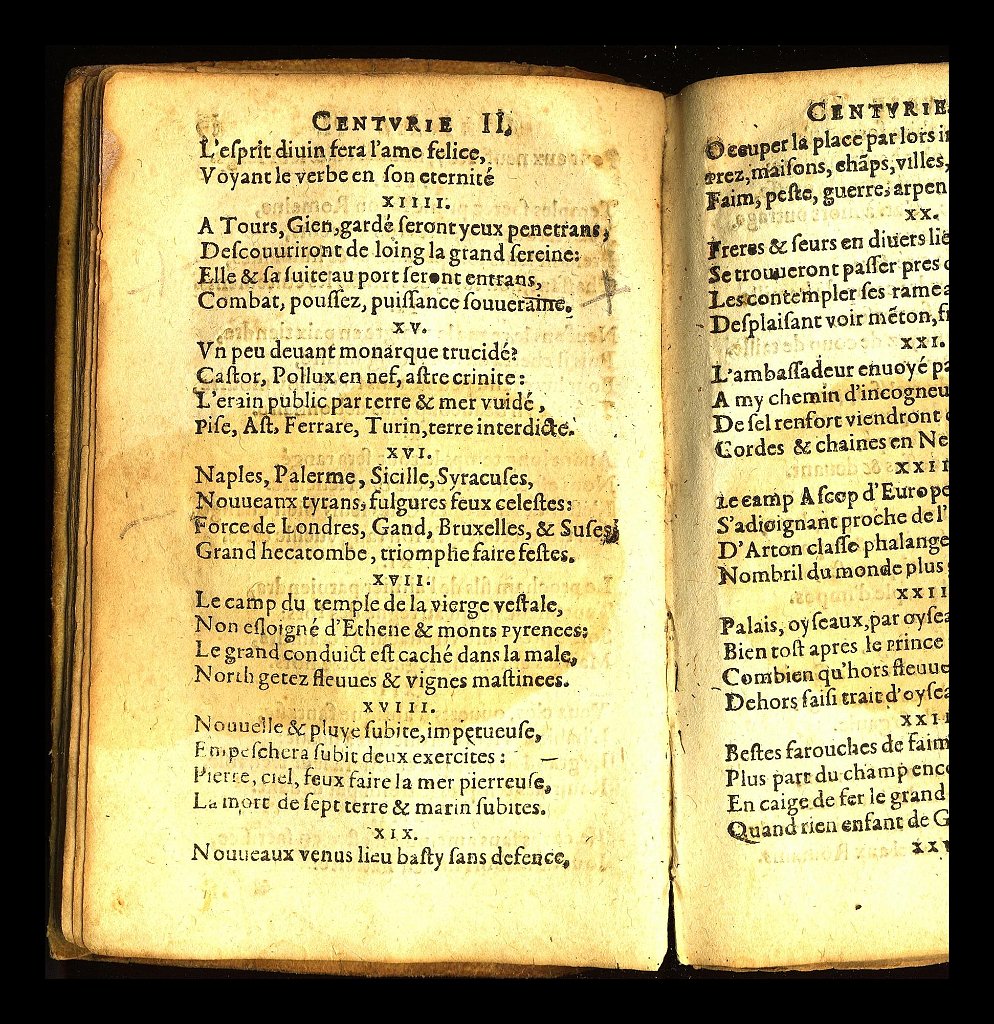 CENTVRIE II.
L'esprit diuin fera l'ame felice,
Voyant le verbe en son eternité
XIIII.
A Tours, Gien, gardé seront yeux penetrans,
Descouuriront de loing la grand sereine:
Elle & sa suite au port seront entrans,
Combat, poussez, puissance souueraine.
XV.
Vn peu deuant monarque trucidé?
Castor, Pollux en nef, astre crinite:
L'erain public par terre & mer vuidé,
Pise, Ast, Ferrare, Turin, terre interdicte.
XVI.
Naples, Palerme, Sicille, Syracuses,
Nouueanx tyrans, fulgures feux celestes:
Force de Londres, Gand, Bruxelles, & Suses,
Grand hecatombe, triomphe faire festes.
XVII.
Le camp du temple de la vierge vestale,
Non esloigné d'Ethene & monts Pyrenees:
Le grand conduict est caché dans la male,
North getez fleuues & vignes mastinees.
XVIII.
Nouuelle & pluye subite, impetueuse,
Empeschera subit deux exercites:
Pierre, ciel, feux faire la mer pierreuse,
La mort de sept terre & marin subites.
XIX.
Nouueaux venus lieu basty sans defence,
CENTVRIE
Occuper la place par lors
prez, maisons, chãps, villes,
Faim, peste, guerre, arpen
XX.
Freres & seurs en diuers lie
Se trouueront passer pres
Les contempler ses ramea
Desplaisant voir mẽton, f
XXI.
L'ambassadeur enuoyé pa
A my chemin d'incogneu
De sel renfort viendront
Cordes & chaines en Ne
XXII
Le camp Ascop d'Europe
S'adioignant proche de l'
D'Arton classe phalange
Nombril du monde plus
XXII
Palais, oyseaux, par oysea
Bien tost apres le prince
Combien qu'hors fleuue
Dehors saisi trait d'oysea
XXII
Bestes farouches de faim
Plus part du champ enco
En caige de fer le grand
Quand rien enfant de G
XXV